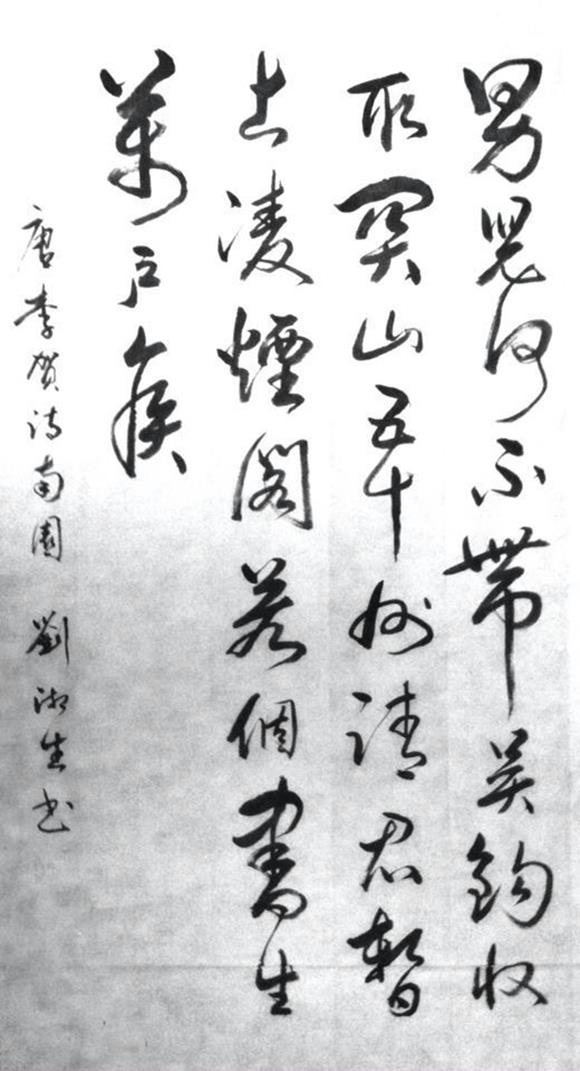 男児何不帶吳鉤收
取關山五十州請君暫
上凌煙閣若個書生
萬戶侯
唐李賀詩南園 劉湘生书